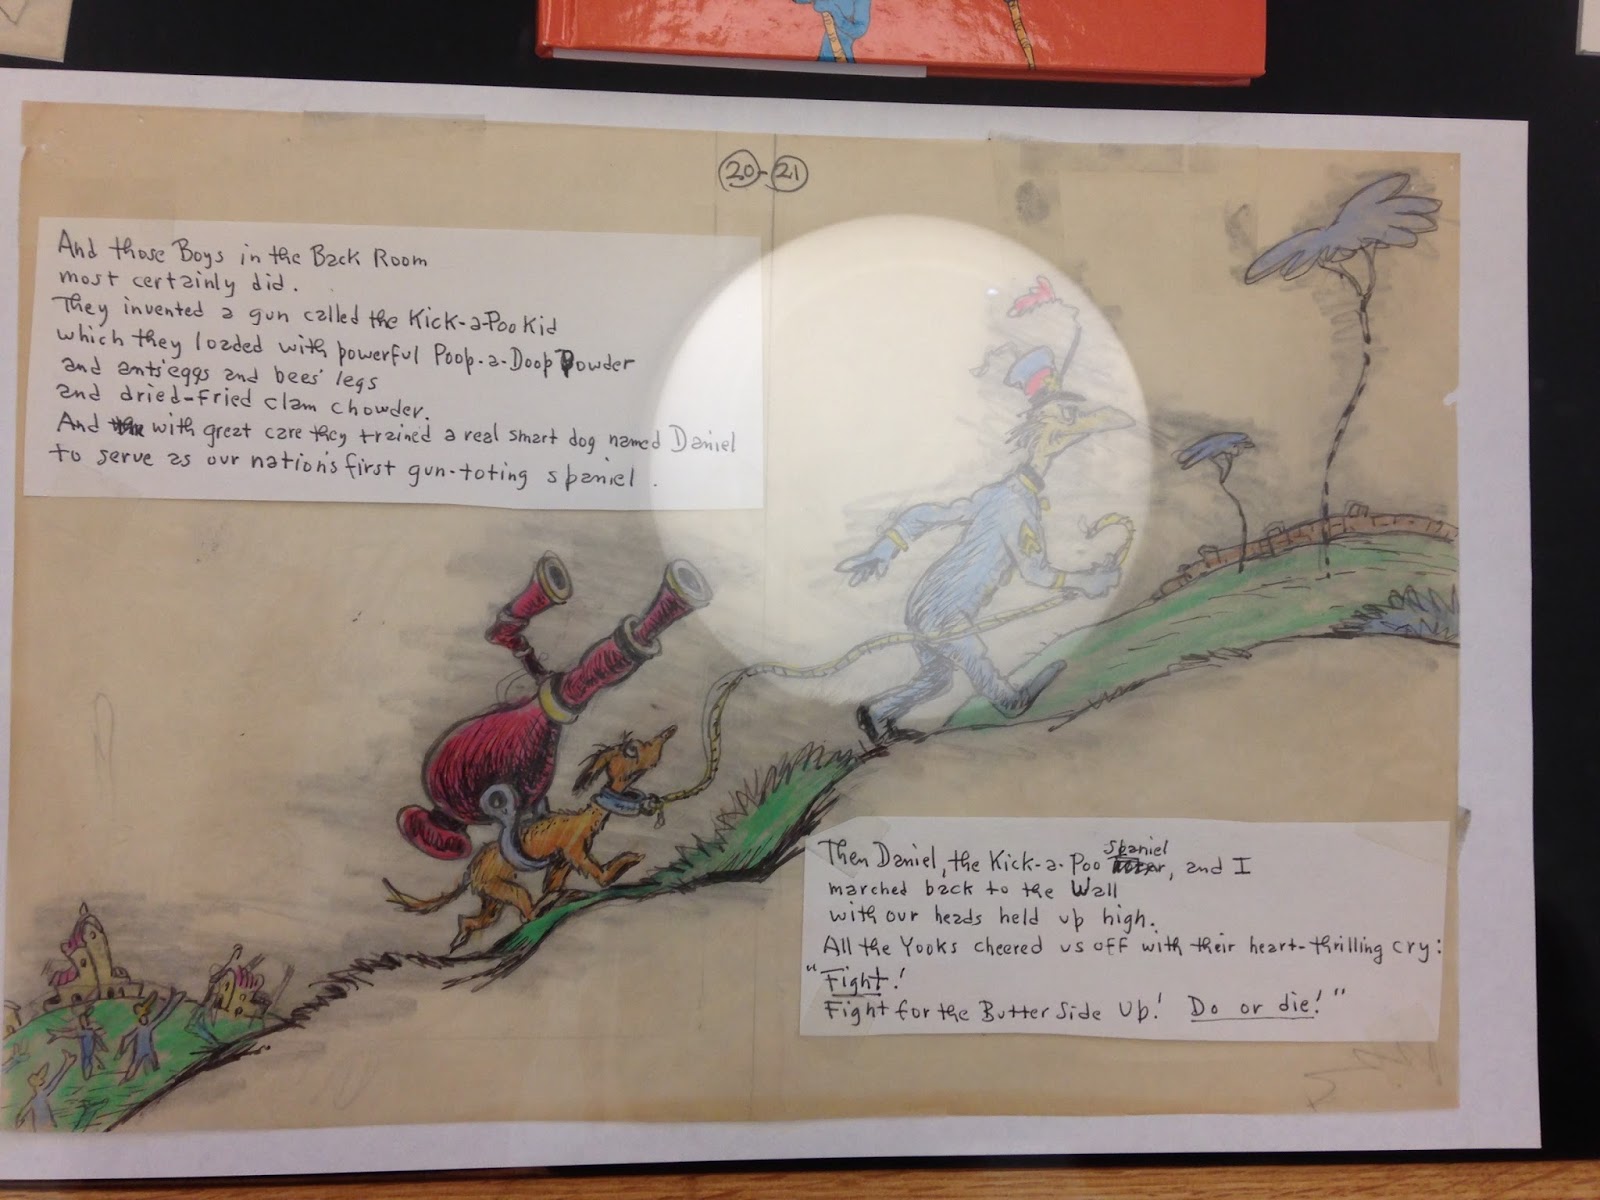 20-21
And those Boys in the Back Room
most certainly did.
They invented a gun called the Kick-a-Poo Kid
which they loaded with powerful Poop-a-Doop Powder
and ants' eggs and bees' legs
and dried-fried clam chowder.
And with great care they trained a real smart dog named Daniel
to serve as our nation's first gun-toting spaniel.
Then Daniel, the Kick-a-Poo Spaniel, and I
marched back to the Wall
with our heads held up high.
All the Yooks cheered us off with their heart-thrilling cry:
"Fight!
Fight for the Butter Side Up! Do or die!"